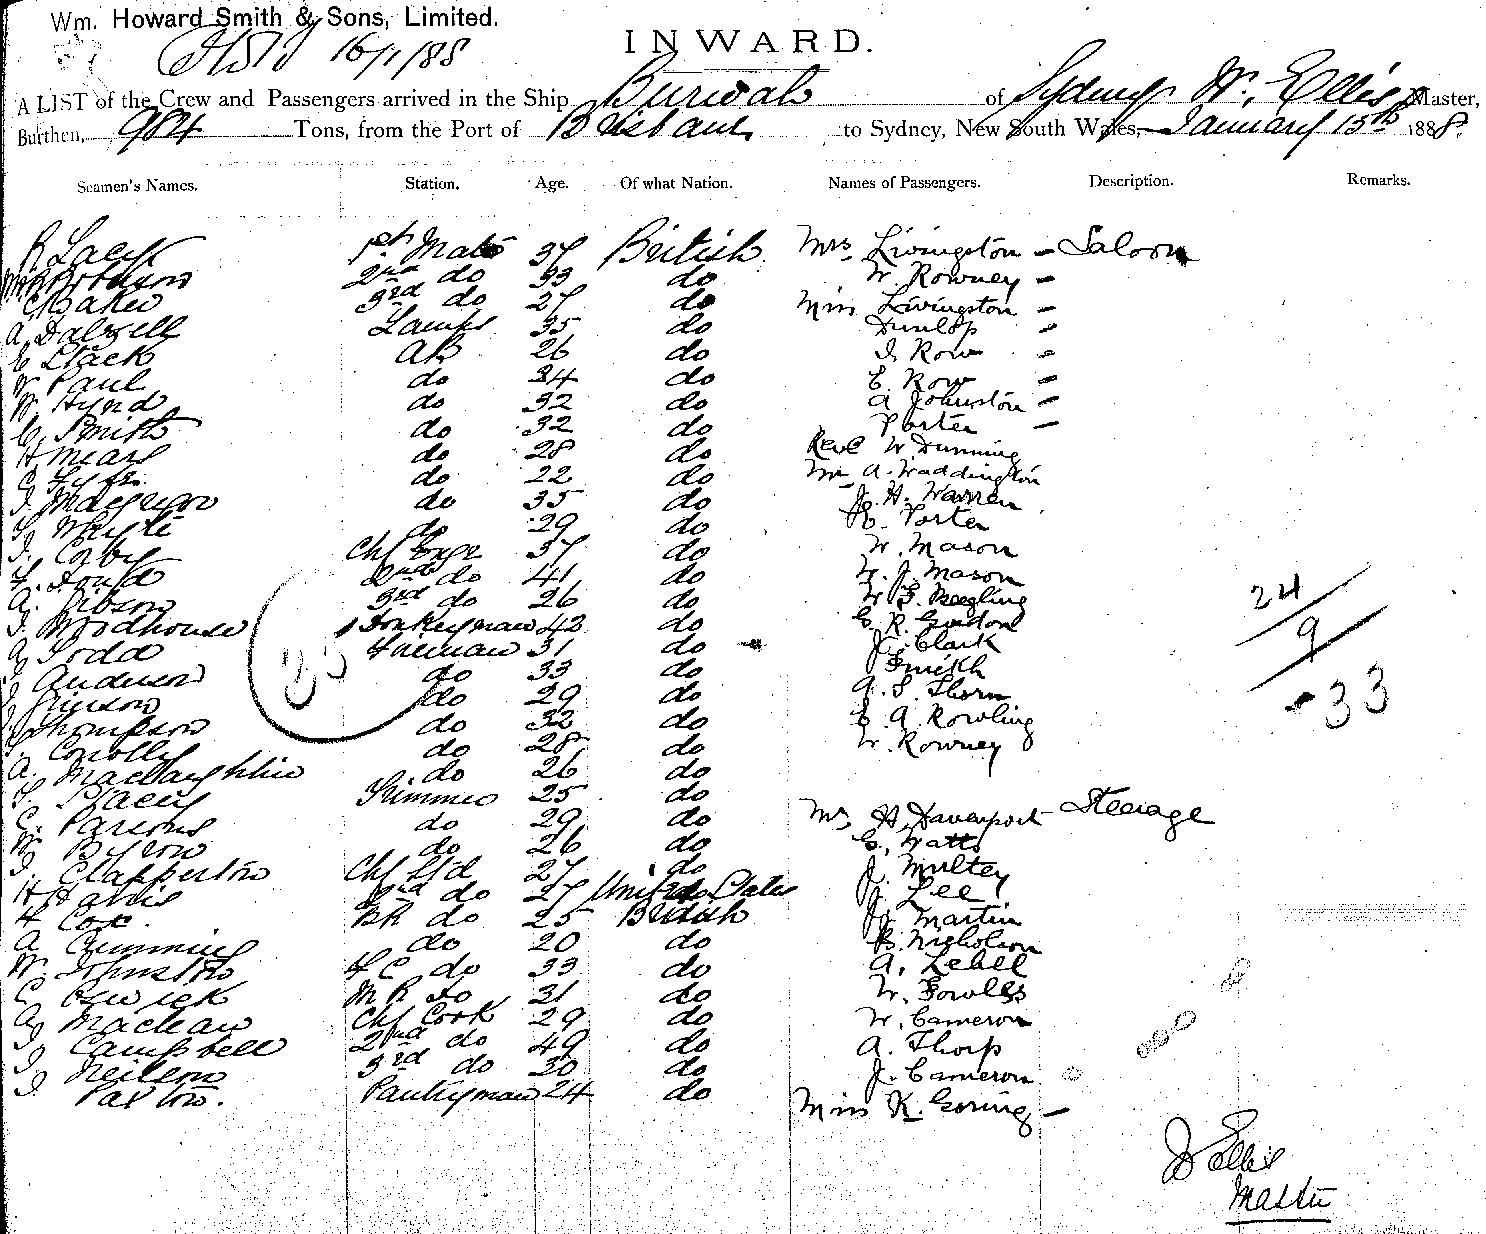 Wm. Howard Smith & Sons, Limited.
16/1/88
INWARD.
A LIST of the Crew and Passengers arrived in the Ship Burwah of Sydney W. Ellis Master,
Burthen, 984 Tons, from the Port of Brisbane to Sydney, New South Wales, January 15th 1888.
Seamen's Names. Station. Age. Of what Nation. Names of Passengers. Description. Remarks.
R Lack 1st Mate 37 British Mrs Livingston - Saloon
2nd do 33 do W. Rowney -
Baker 3rd do 27 do Miss Livingston -
A Dalzell Lamps 35 do Dunlop -
Stack AB 26 do J. Row -
W Paul do 34 do E. Row -
W. Hynd do 32 do A Johnston -
C. Smith do 32 do Porter -
H Mears do 28 do Revd W. Dunning
C do 22 do Mr A. Waddington
J. Macgregor do 35 do J. H. Warren
Whyte do 29 do Porter
J. Corby Chf Engr 37 do W. Mason
2nd do 41 do W. J. Mason
A. Gibson 3rd do 26 do
J. Woodhouse Donkeyman 42 do E. R. Gordon
Todd Fireman 31 do J. Clark
Anderson do 33 do Smith
do 29 do A. S. Thorn
Thompson do 32 do E. A. Rowling
Conolly do 28 do W. Rowney
A. MacLaughlin do 26 do
Stacey Trimmer 25 do
C. Parsons do 29 do Mr H. Davenport - Steerage
W Byrow do 26 do Watts
J Clapperton Chf Std 27 do J. Multey
H Harris 2nd do 27 United States J. Lee
F Cox. BR do 25 British J. Martin
A Cumming do 20 do Nicholson
W. Johnston F C do 33 do A. Lebel
C. Eswick M R do 31 do W. Fowles
A Maclean Chf Cook 29 do W. Cameron
J Campbell 2nd do 49 do A. Thorp
J Neilson 3rd do 30 do J. Cameron
J. Paxton. Pantryman 24 do Miss K. Goring -
24
9
33
35
Ellis
Master